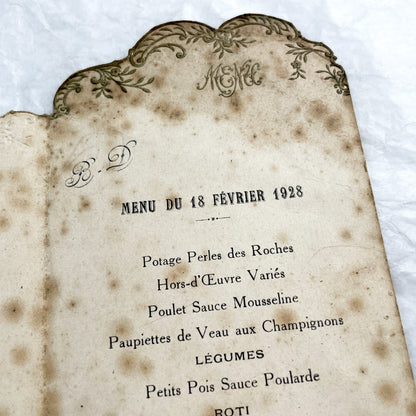 MENU
B. D
MENU DU 18 FÉVRIER 1928
Potage Perles des Roches
Hors-d'Œuvre Variés
Poulet Sauce Mousseline
Paupiettes de Veau aux Champignons
LÉGUMES
Petits Pois Sauce Poularde
ROTI